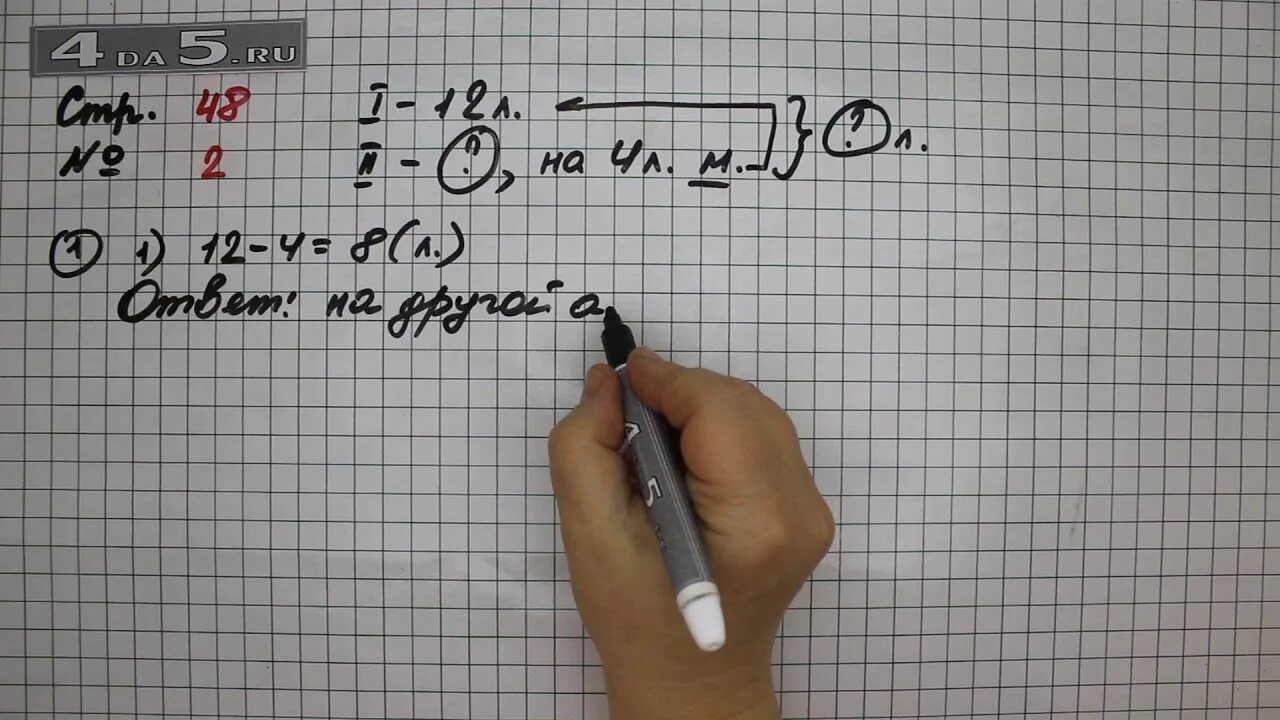 4DA5.RU
Стр. 48 I - 12 л.
№ 2 II - ?, на 4 л. м. } ? л.
① 1) 12 - 4 = 8 (л.)
Ответ: на другой а